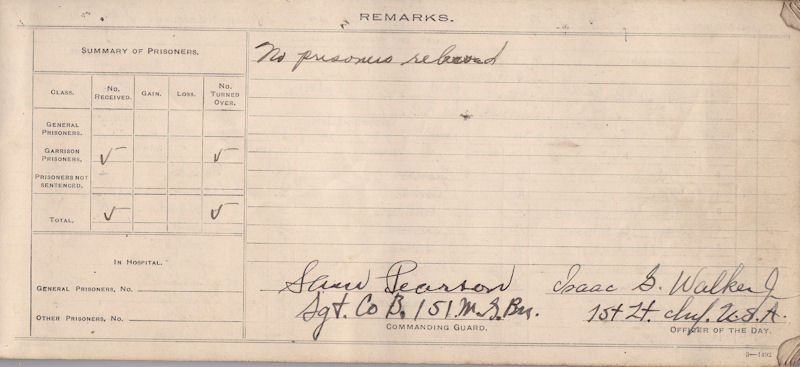 REMARKS.
SUMMARY OF PRISONERS.
No prisoners released
CLASS. NO. RECEIVED. GAIN. LOSS. NO. TURNED OVER.
GENERAL PRISONERS.
GARRISON PRISONERS. √ √
PRISONERS NOT SENTENCED.
TOTAL. √ √
IN HOSPITAL.
GENERAL PRISONERS, NO.
OTHER PRISONERS, NO.
Sam Pearson
Sgt. Co B. 151. M. G. Bn.
COMMANDING GUARD.
Isaac G. Walker Jr
1st Lt. Inf. U.S.A.
OFFICER OF THE DAY.
3—1492